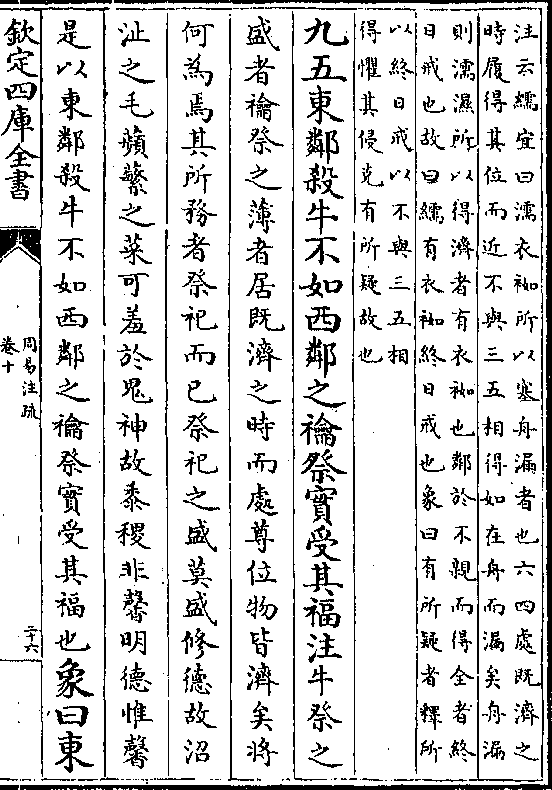 注云繻宜曰濡衣袽所以塞舟漏者也六四處既濟之
時履得其位而近不與三五相得如在舟而漏矣舟漏
則濡濕所以得濟者有衣袽也鄰於不親而得全者終
日戒也故曰繻有衣袽終日戒也象曰有所疑者釋所
以終日戒以不與三五相
得懼其侵克有所疑故也
九五東鄰殺牛不如西鄰之禴祭實受其福注牛祭之
盛者禴祭之薄者居既濟之時而處尊位物皆濟矣將
何為焉其所務者祭祀而已祭祀之盛莫盛修德故沼
沚之毛蘋蘩之菜可羞於鬼神故黍稷非馨明德惟馨
是以東鄰殺牛不如西鄰之禴祭實受其福也象曰東
欽定四庫全書
周易注疏
卷十
二十六